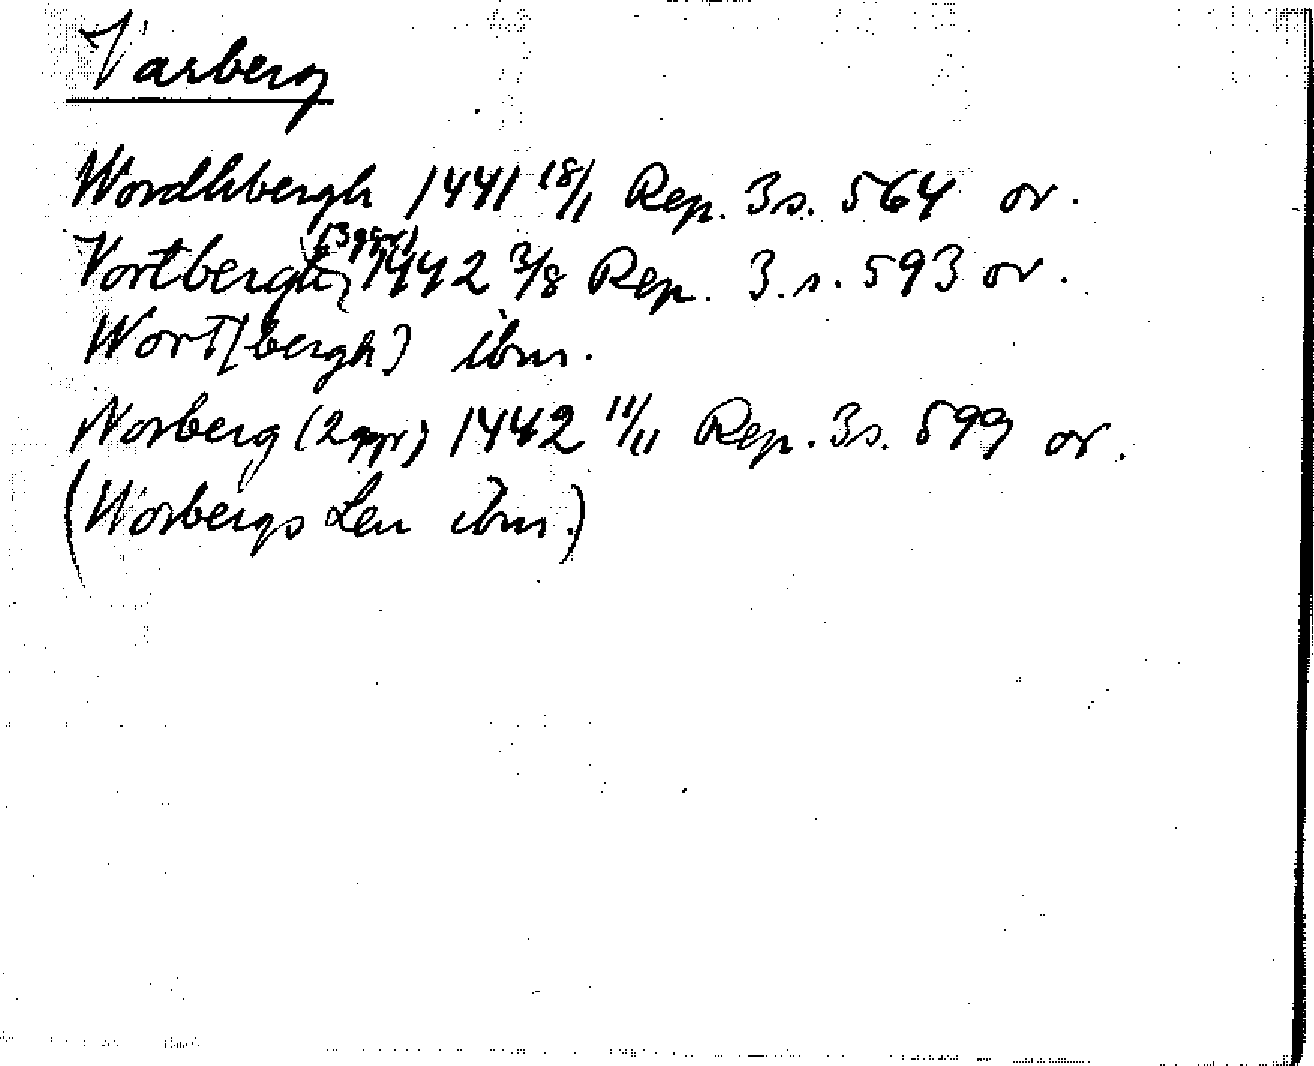 Varberg
Wordhbergh 1441 18/1 Rep. 3 s. 564 or.
Vortbergh (3 ggr) 1442 3/8 Rep. 3. s. 593 or.
Wort[bergh] ibm.
Worberg (2 ggr) 1442 11/11 Rep. 3 s. 599 or.
(Worbergs Len ibm.)